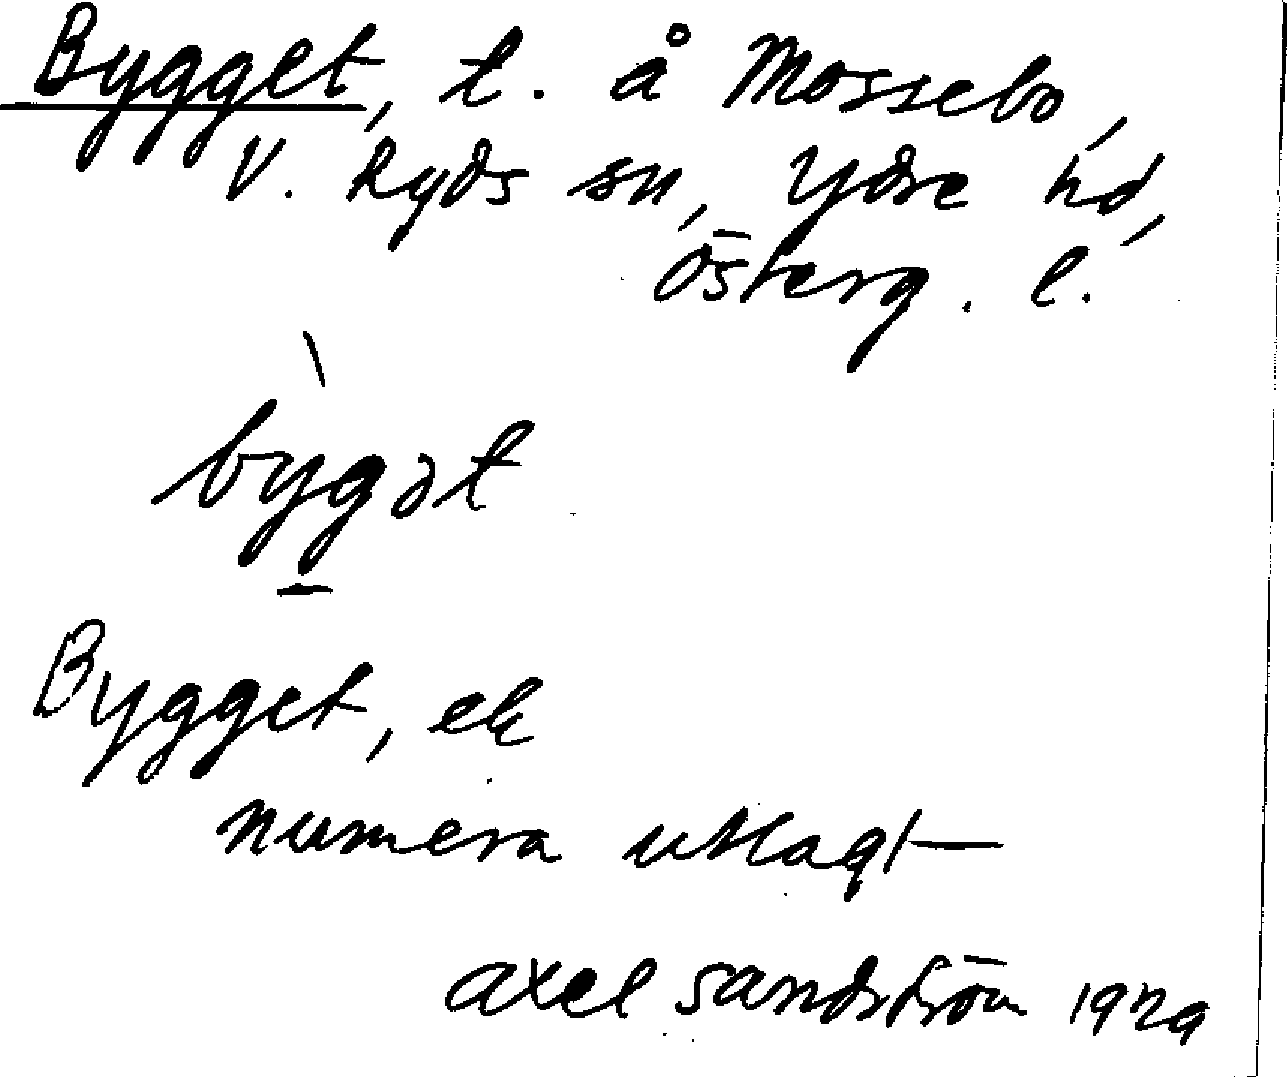 Bygget, t. å Mossebo,
V. Ryds sn, Ydre hd,
Österg. l.
bỳg̲ət
Bygget, ek
numera utlagt
Axel Sandström 1929